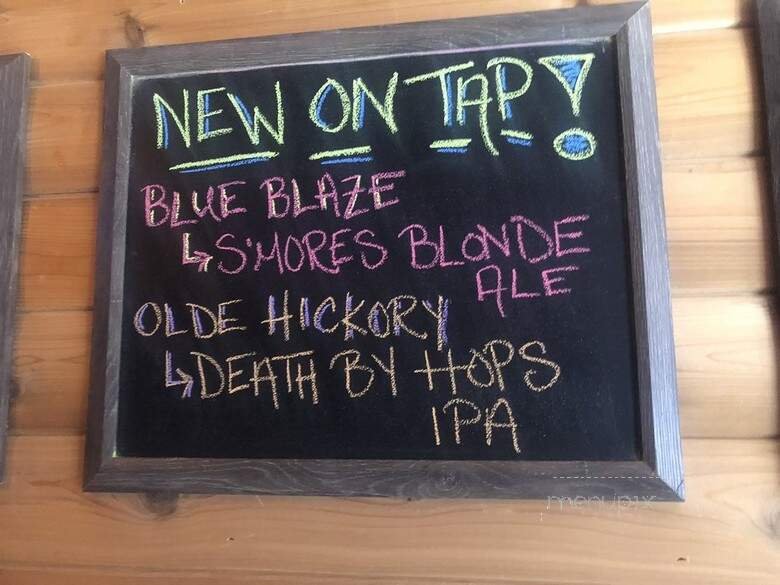 NEW ON TAP!
BLUE BLAZE
↳ S'MORES BLONDE
ALE
OLDE HICKORY
↳ DEATH BY HOPS
IPA
menupix